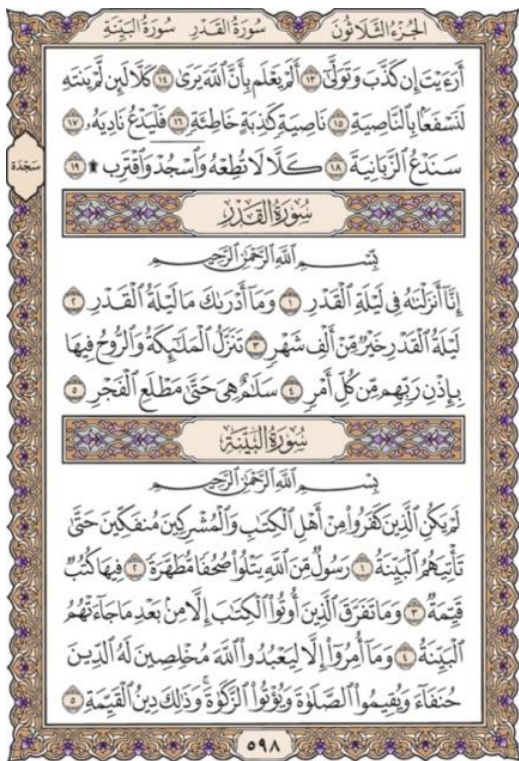 الجُزْءُ الثَّلَاثُونَ سُورَةُ القَدْرِ سُورَةُ البَيِّنَةِ
أَرَءَيْتَ إِن كَذَّبَ وَتَوَلَّىٰٓ ١٣ أَلَمْ يَعْلَم بِأَنَّ ٱللَّهَ يَرَىٰ ١٤ كَلَّا لَئِن لَّمْ يَنتَهِ
لَنَسْفَعًۢا بِٱلنَّاصِيَةِ ١٥ نَاصِيَةٍ كَٰذِبَةٍ خَاطِئَةٍ ١٦ فَلْيَدْعُ نَادِيَهُۥ ١٧
سَنَدْعُ ٱلزَّبَانِيَةَ ١٨ كَلَّا لَا تُطِعْهُ وَٱسْجُدْ وَٱقْتَرِب ۩ ١٩
سَجْدَة
سُورَةُ القَدْرِ
بِسْمِ ٱللَّهِ ٱلرَّحْمَٰنِ ٱلرَّحِيمِ
إِنَّآ أَنزَلْنَٰهُ فِى لَيْلَةِ ٱلْقَدْرِ ١ وَمَآ أَدْرَىٰكَ مَا لَيْلَةُ ٱلْقَدْرِ ٢
لَيْلَةُ ٱلْقَدْرِ خَيْرٌ مِّنْ أَلْفِ شَهْرٍ ٣ تَنَزَّلُ ٱلْمَلَٰٓئِكَةُ وَٱلرُّوحُ فِيهَا
بِإِذْنِ رَبِّهِم مِّن كُلِّ أَمْرٍ ٤ سَلَٰمٌ هِىَ حَتَّىٰ مَطْلَعِ ٱلْفَجْرِ ٥
سُورَةُ البَيِّنَةِ
بِسْمِ ٱللَّهِ ٱلرَّحْمَٰنِ ٱلرَّحِيمِ
لَمْ يَكُنِ ٱلَّذِينَ كَفَرُوا۟ مِنْ أَهْلِ ٱلْكِتَٰبِ وَٱلْمُشْرِكِينَ مُنفَكِّينَ حَتَّىٰ
تَأْتِيَهُمُ ٱلْبَيِّنَةُ ١ رَسُولٌ مِّنَ ٱللَّهِ يَتْلُوا۟ صُحُفًا مُّطَهَّرَةً ٢ فِيهَا كُتُبٌ
قَيِّمَةٌ ٣ وَمَا تَفَرَّقَ ٱلَّذِينَ أُوتُوا۟ ٱلْكِتَٰبَ إِلَّا مِنۢ بَعْدِ مَا جَآءَتْهُمُ
ٱلْبَيِّنَةُ ٤ وَمَآ أُمِرُوٓا۟ إِلَّا لِيَعْبُدُوا۟ ٱللَّهَ مُخْلِصِينَ لَهُ ٱلدِّينَ
حُنَفَآءَ وَيُقِيمُوا۟ ٱلصَّلَوٰةَ وَيُؤْتُوا۟ ٱلزَّكَوٰةَ ۚ وَذَٰلِكَ دِينُ ٱلْقَيِّمَةِ ٥
٥٩٨